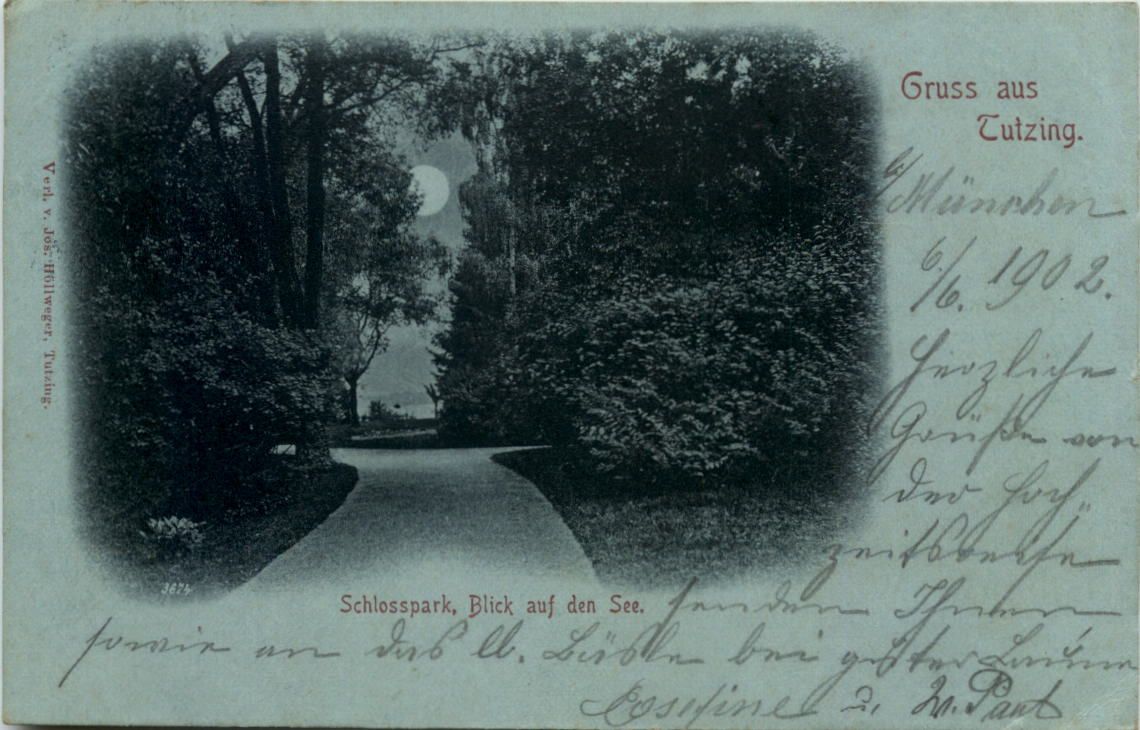 Gruss aus
Tutzing.
Verl. v. Jos. Hüllweger, Tutzing.
München
6./6. 1902.
Herzliche
Grüße von
der Hoch„
zeitsreise
3674
Schlosspark, Blick auf den See.
senden Ihnen
sowie an das lb. Bäsle bei guter Laune
Josefine u. W. Paul